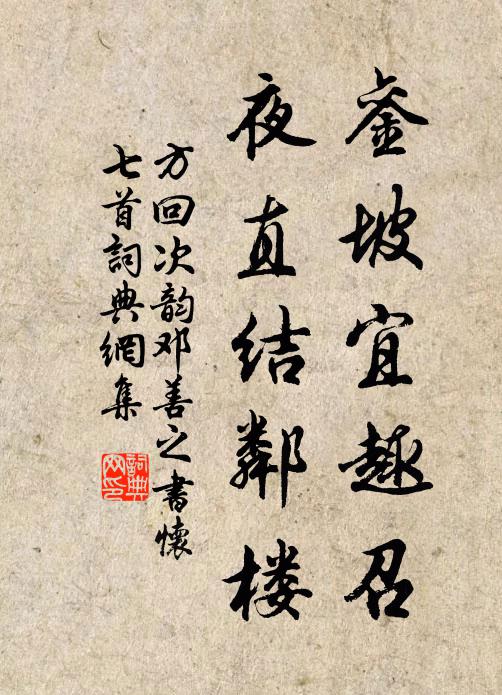 銮坡宜趣召
夜直结鄰楼
方回次韵邓善之書懷
七首詞典網集
詞典
网印